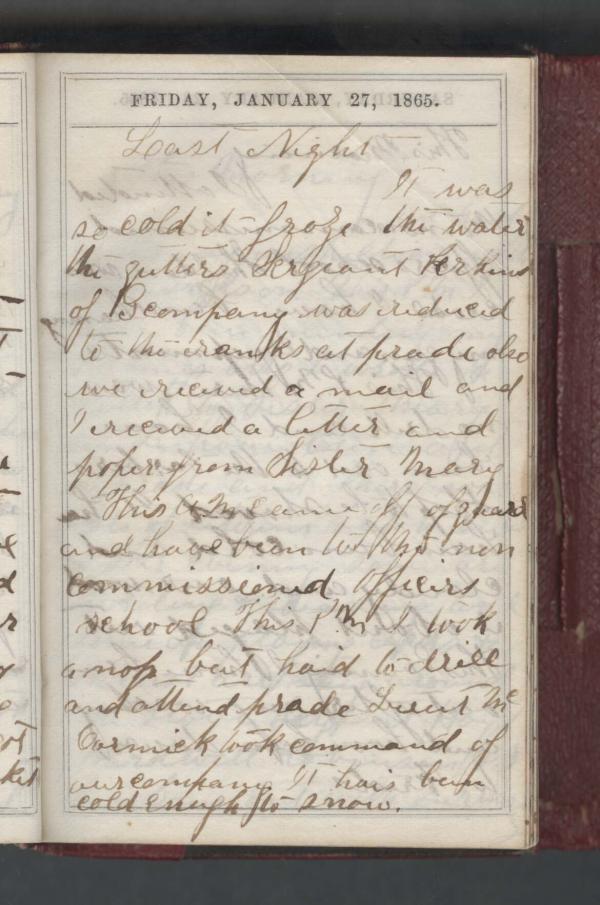 FRIDAY, JANUARY 27, 1865.
Last Night
It was
so cold it froze the water
the gutters Sergeant Perkins
of G company was reduced
to the ranks at prade also
we recieved a mail and
I recieved a letter and
paper from Sister Mary
This A M came off of guard
and have been to the non
commissioned officers
school This P.M I took
a nap but haid to drill
and attend prade Lieut Mc
Cormick took command of
our company It hais been
cold enugh to snow.